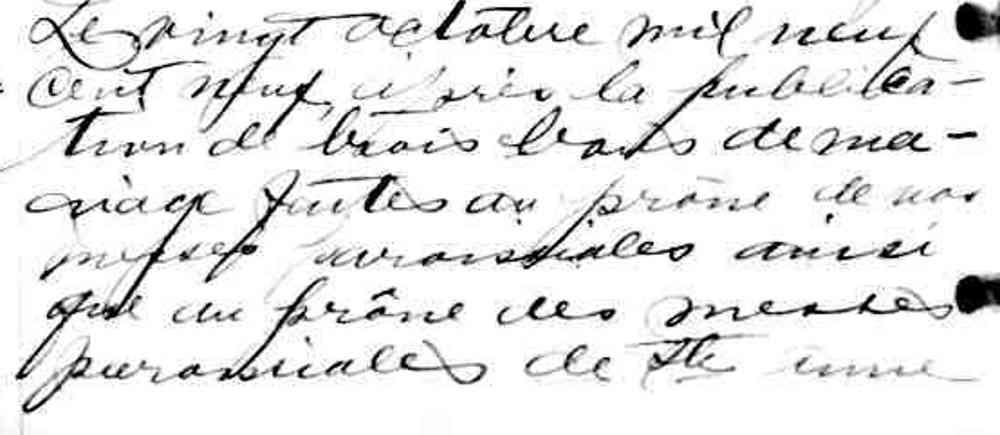 Le vingt octobre mil neuf
cent neuf, après la publica-
tion de trois bans de ma-
riage faites au prône de nos
messes paroissiales ainsi
que au prône des messes
paroissiales de Ste Anne